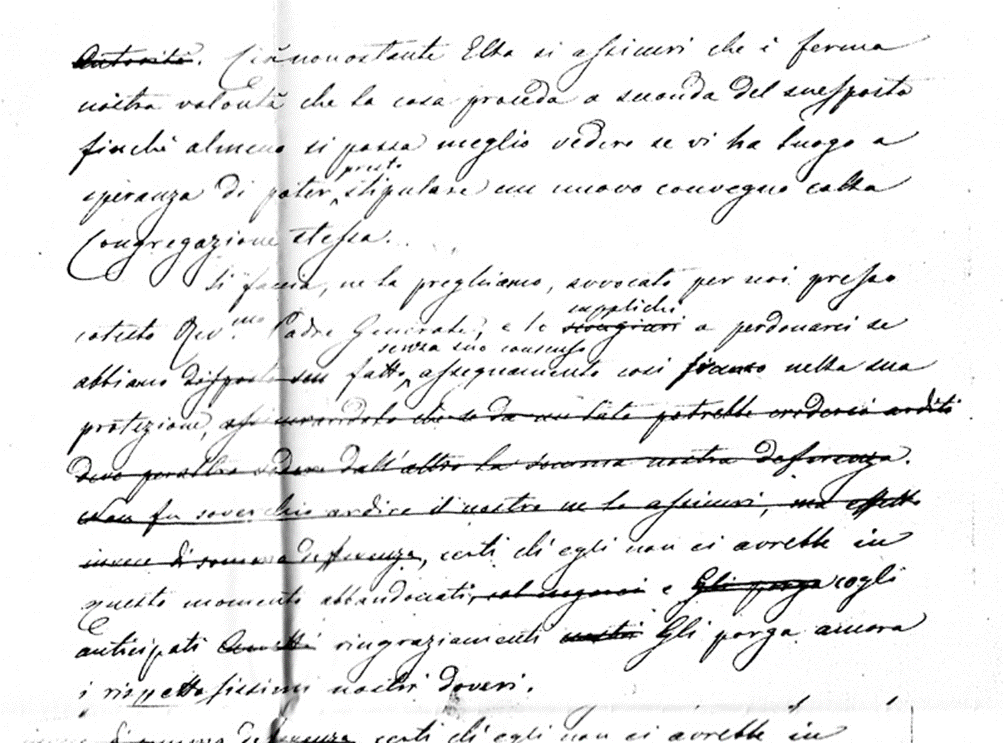 Autorità. Ciònonostante Ella si assicuri che è ferma
nostra volontà che la cosa proceda a seconda del suesposto
finchè almeno si possa meglio vedere se vi ha luogo a
presto
speranza di poter stipulare un nuovo convegno colla
Congregazione stessa.
Si faccia, ne la preghiamo, avvocato per noi presso
supplichi
cotesto Rev.mo Padre Generale, e lo scongiuri a perdonarci se
senza suo consenso
abbiamo disposto fatto assegnamento così franco nella sua
protezione, assicurandolo che se da un lato potrebbe crederci arditi
deve peraltro vedere dall'altro la somma nostra deferenza.
Non fu soverchio ardire il nostro ne lo assicuri, ma effetto
invece di somma deferenza, certi ch'egli non ci avrebbe in
questo momento abbandonati, e Gli porga cogli
anticipati ringraziamenti nostri Gli porga ancora
i rispettosissimi nostri doveri.
invece di somma deferenza, certi ch'egli non ci avrebbe in